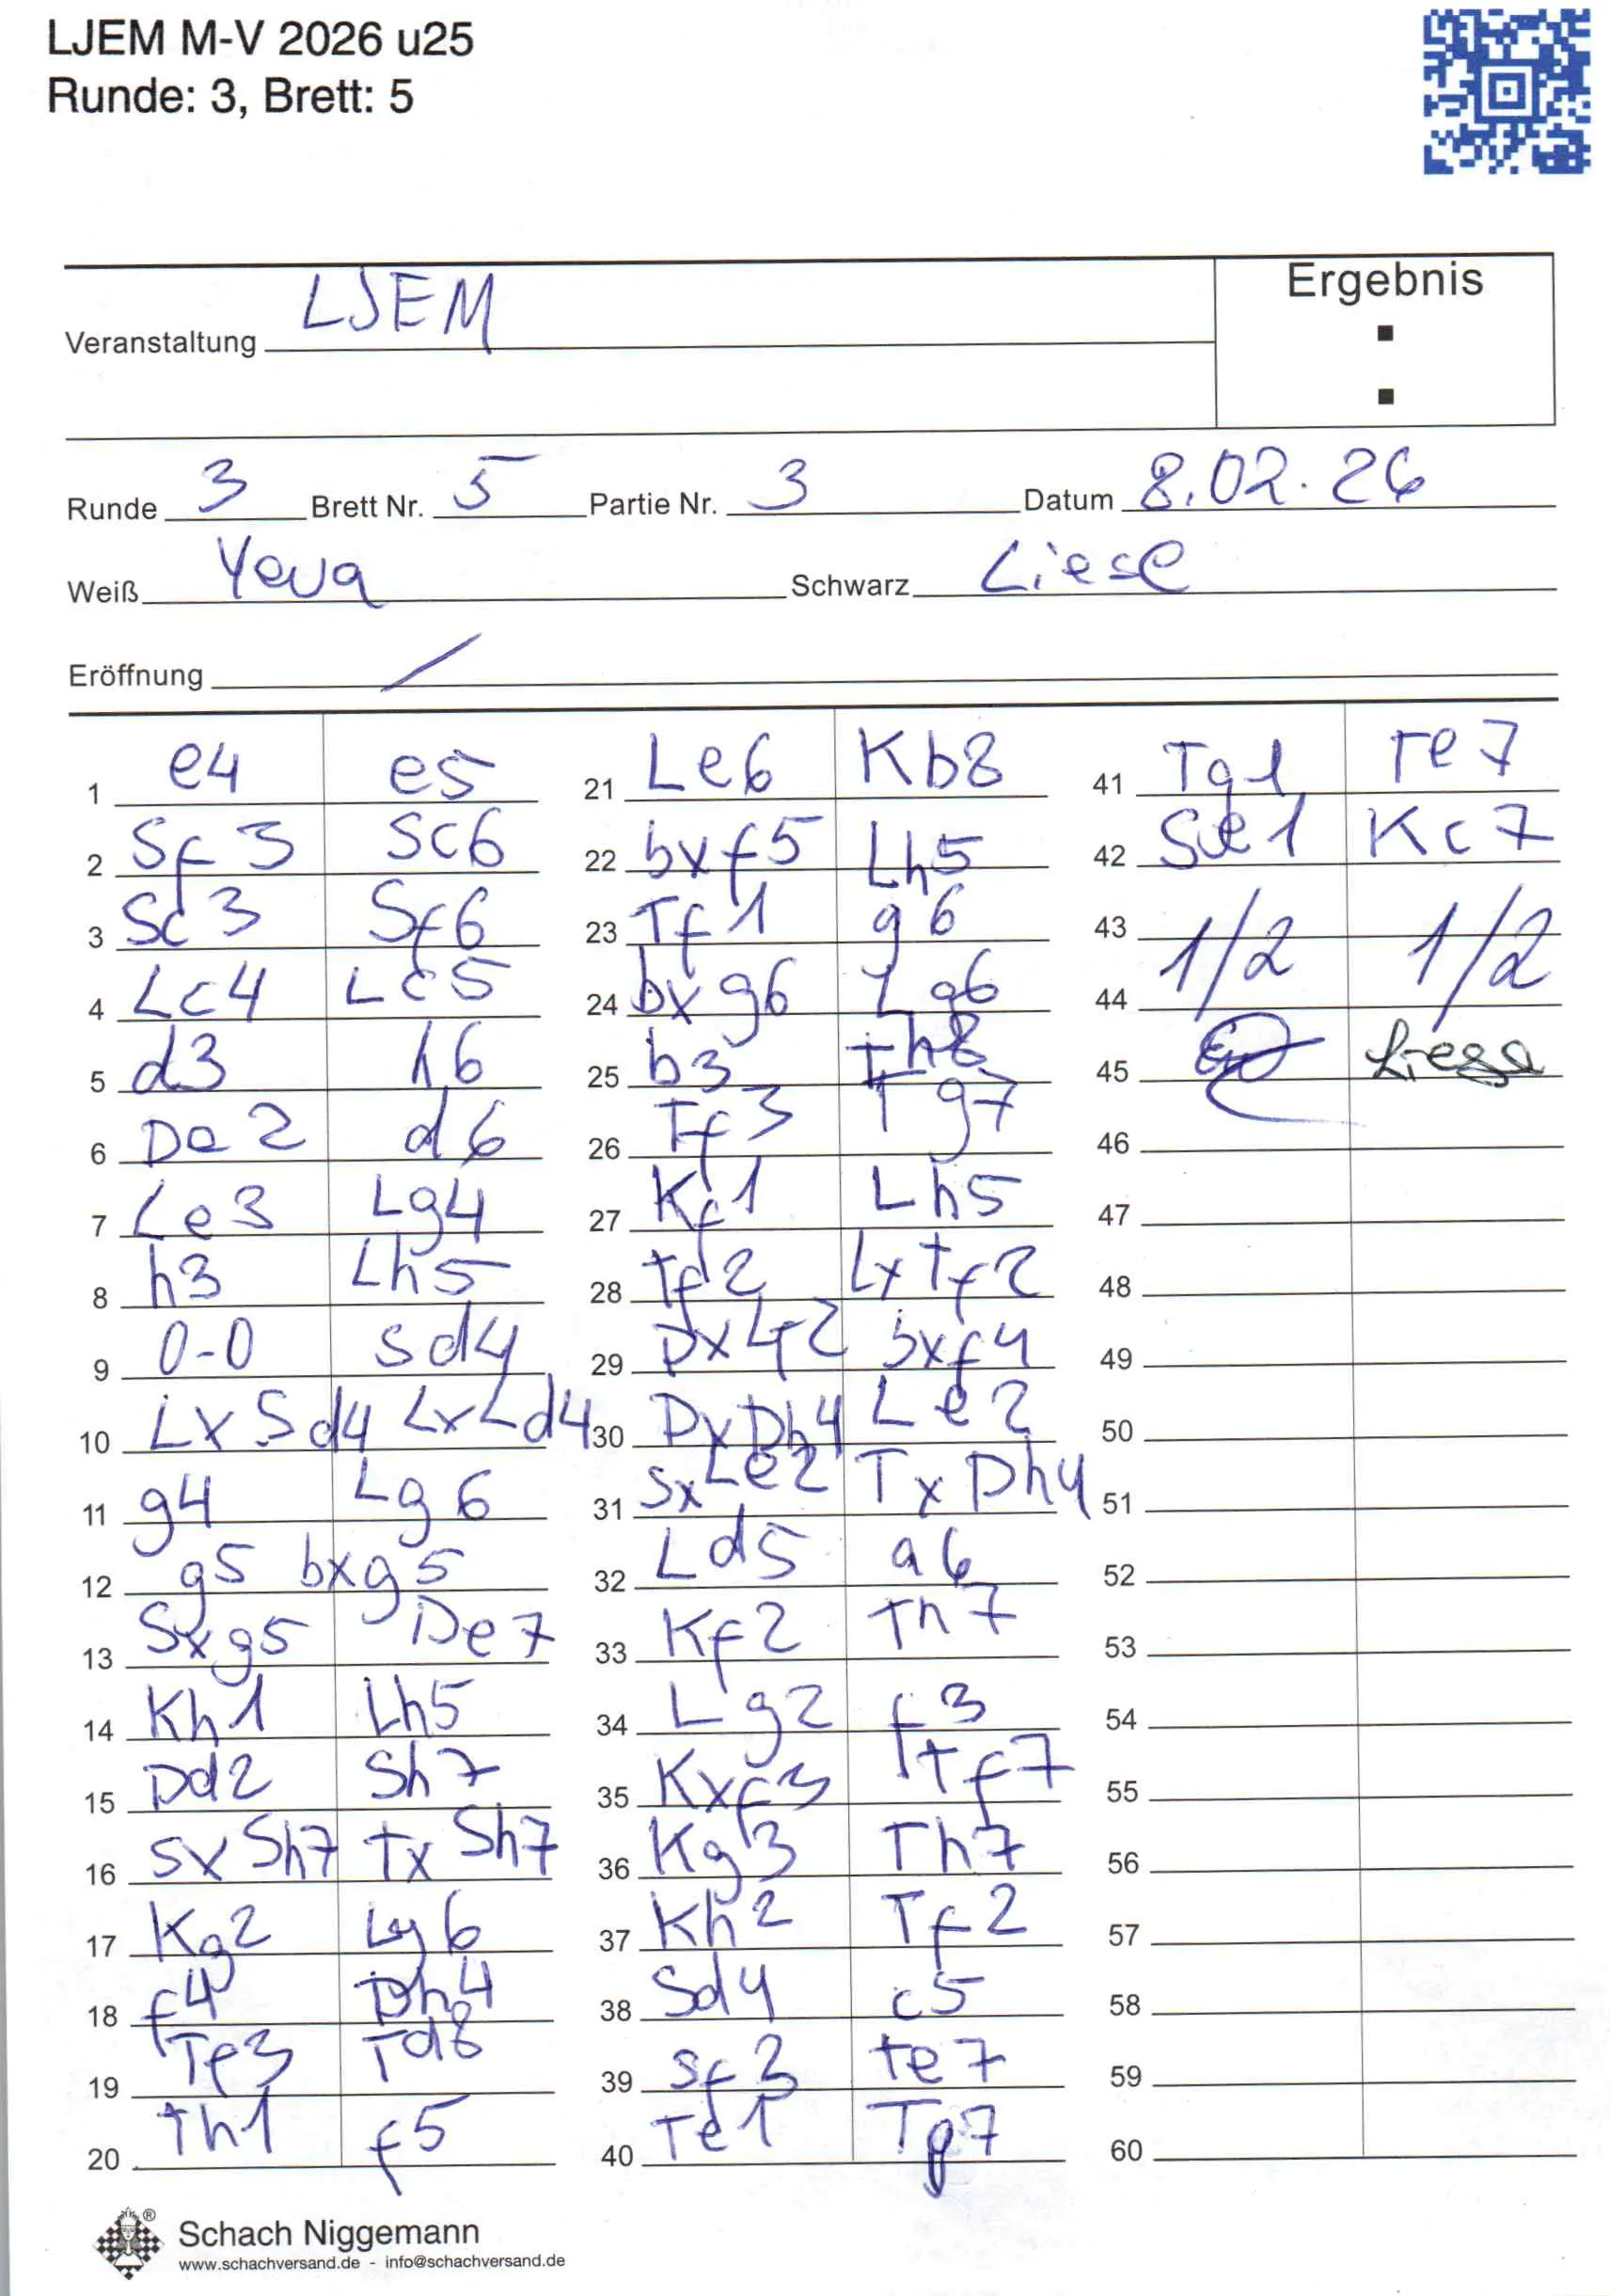 LJEM M-V 2026 u25
Runde: 3, Brett: 5
Ergebnis
Veranstaltung LJEM
:
Runde 3 Brett Nr. 5 Partie Nr. 3 Datum 8.02.26
Weiß Yeva Schwarz Liese
Eröffnung /
1 e4 e5
2 Sf3 Sc6
3 Sc3 Sf6
4 Lc4 Lc5
5 d3 h6
6 De2 d6
7 Le3 Lg4
8 h3 Lh5
9 0-0 Sd4
10 LxSd4 LxLd4
11 g4 Lg6
12 g5 bxg5
13 Sxg5 De7
14 Kh1 Lh5
15 Dd2 Sh7
16 SxSh7 TxSh7
17 Kg2 Lg6
18 f4 Dh4
19 Te3 Td8
20 Th1 f5
21 Le6 Kb8
22 bxf5 Lh5
23 Tf1 g6
24 bxg6 Lg6
25 b3 Th8
26 Tf3 Tg7
27 Kf1 Lh5
28 Tf2 LxTf2
29 DxLf2 bxf4
30 DxDh4 Le2
31 SxLe2 TxDh4
32 Ld5 a6
33 Kf2 Th7
34 Lg2 f3
35 Kxf3 Tf7
36 Kg3 Th7
37 Kh2 Tf2
38 Sd4 c5
39 Sf3 Te7
40 Te1 Tg7
41 Tg1 Te7
42 Se1 Kc7
43 1/2 1/2
44
45 Liese
46
47
48
49
50
51
52
53
54
55
56
57
58
59
60
Schach Niggemann
www.schachversand.de - info@schachversand.de